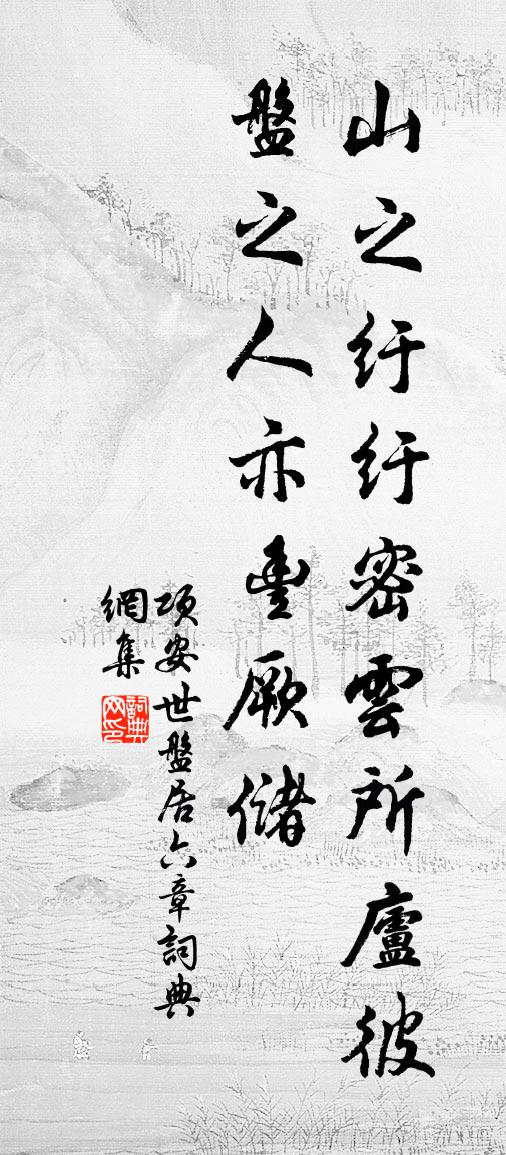 山之纡纡密雲所廬彼
盤之人亦豊厥儲
项安世盤居六章詞典
網集
詞典
网印